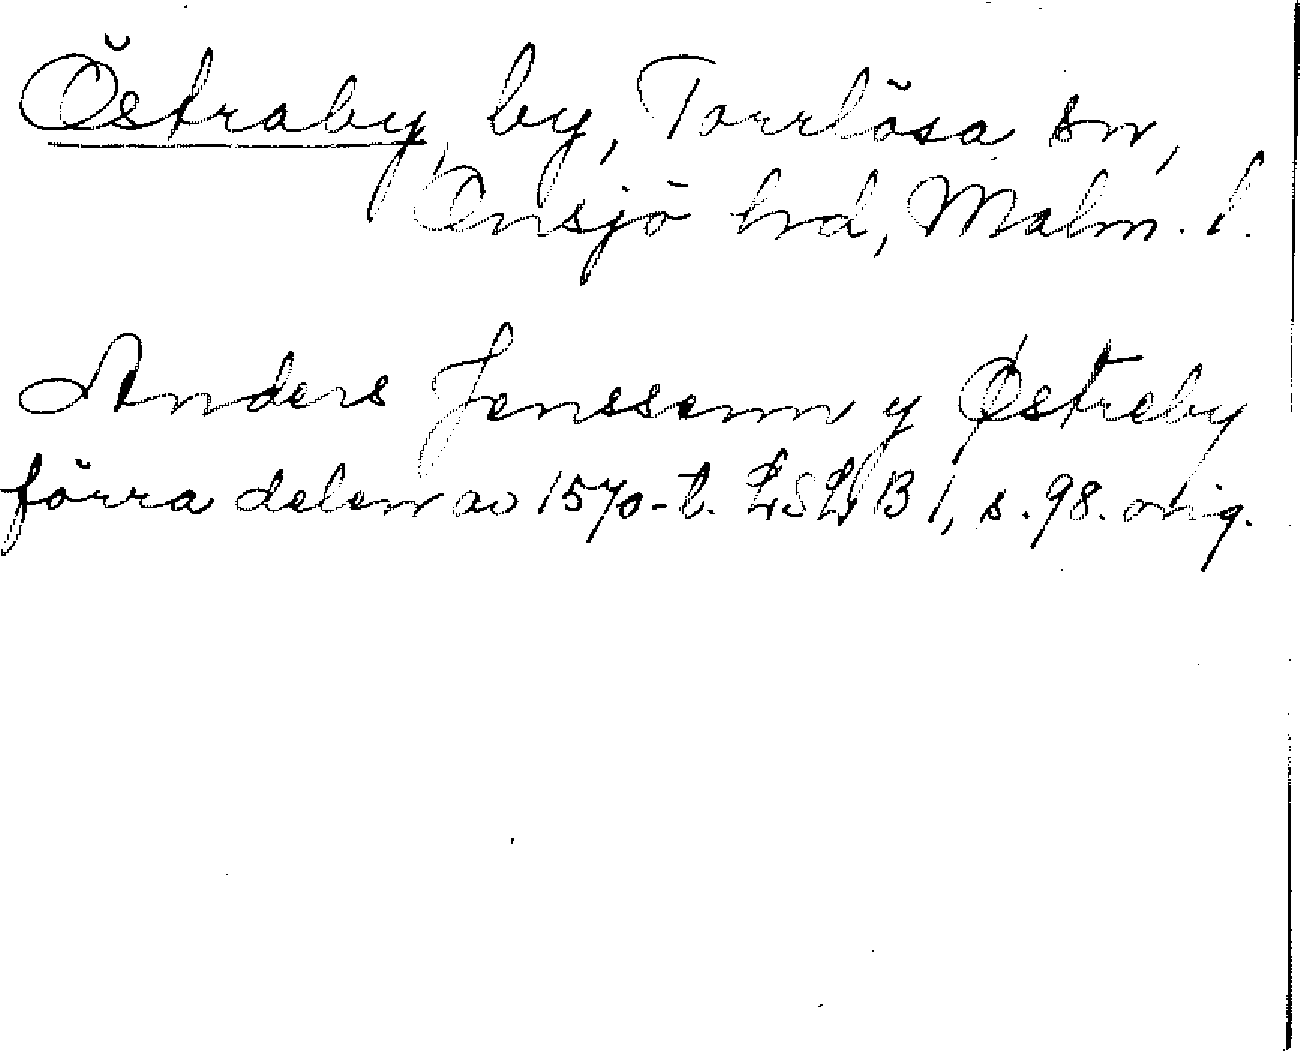 Östraby, by, Torrlösa sn,
Onsjö hrd, Malm. l.
Anders Jenssenn y Østreby
förra delen av 1570-t. LSLB 1, s. 98. orig.